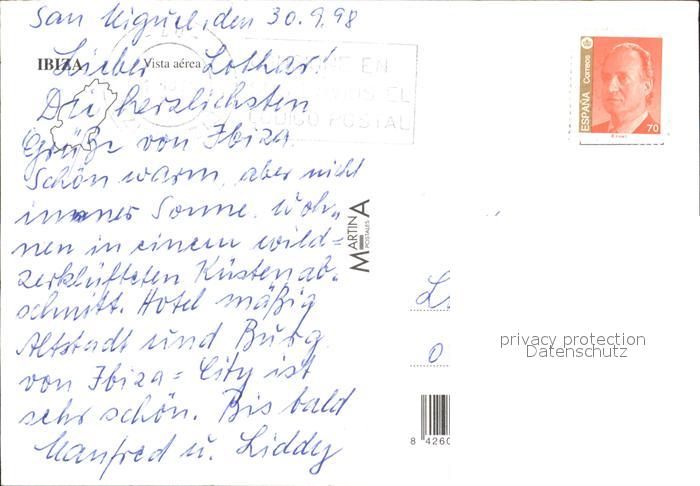 San Miguel, den 30.9.98
IBIZA Vista aérea
Lieber Lothar!
Die herzlichsten
Grüße von Ibiza.
Schön warm, aber nicht
immer Sonne. Woh-
nen in einem wild=
zerklüfteten Küstenab-
schnitt. Hotel mäßig
Altstadt und Burg
von Ibiza=City ist
sehr schön. Bis bald
Manfred u. Liddy
EN
EL
CODIGO POSTAL
MARTINA
POSTALES
ESPAÑA Correos
70
privacy protection
Datenschutz
8 4260